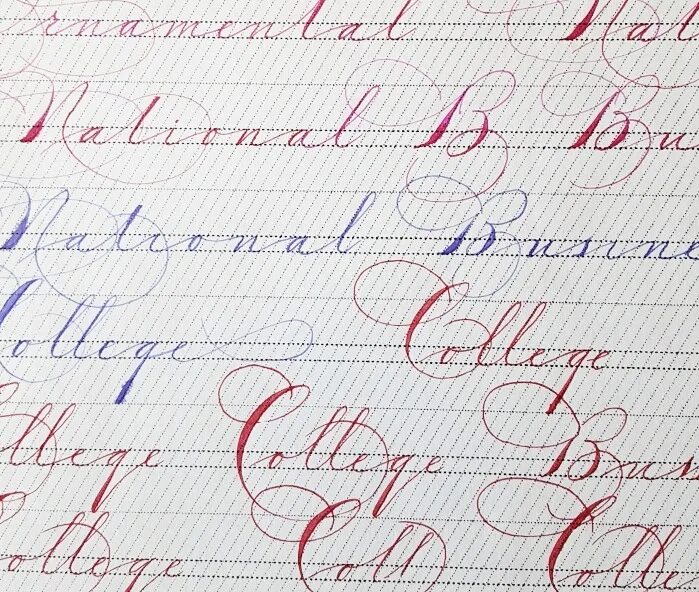 rnamental Nat
National B Bus
National Busine
College College
llege College Bus
ollege Coll Colle